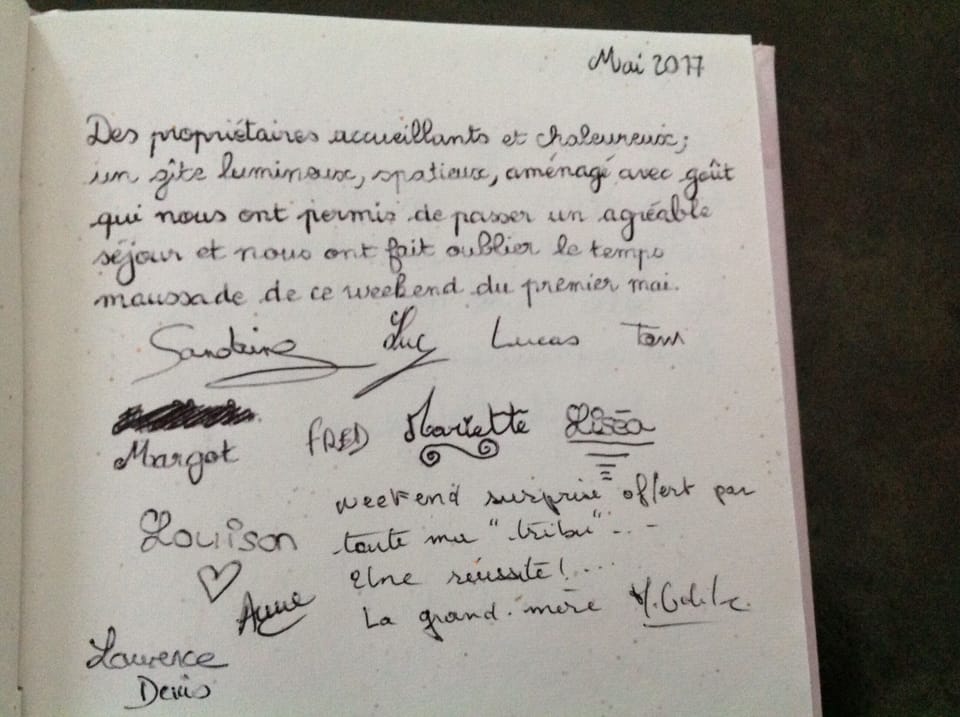 Mai 2017
Des propriétaires accueillants et chaleureux;
un gîte lumineux, spatieux, aménagé avec goût
qui nous ont permis de passer un agréable
séjour et nous ont fait oublier le temps
maussade de ce weekend du premier mai.
Sandrine Luc Lucas Tom
Margot FRED Mariette Liséa
weekend surprise offert par
toute ma "tribu"...-
Une réussite!...
La grand-mère
Louison
Anne
Laurence
Denis